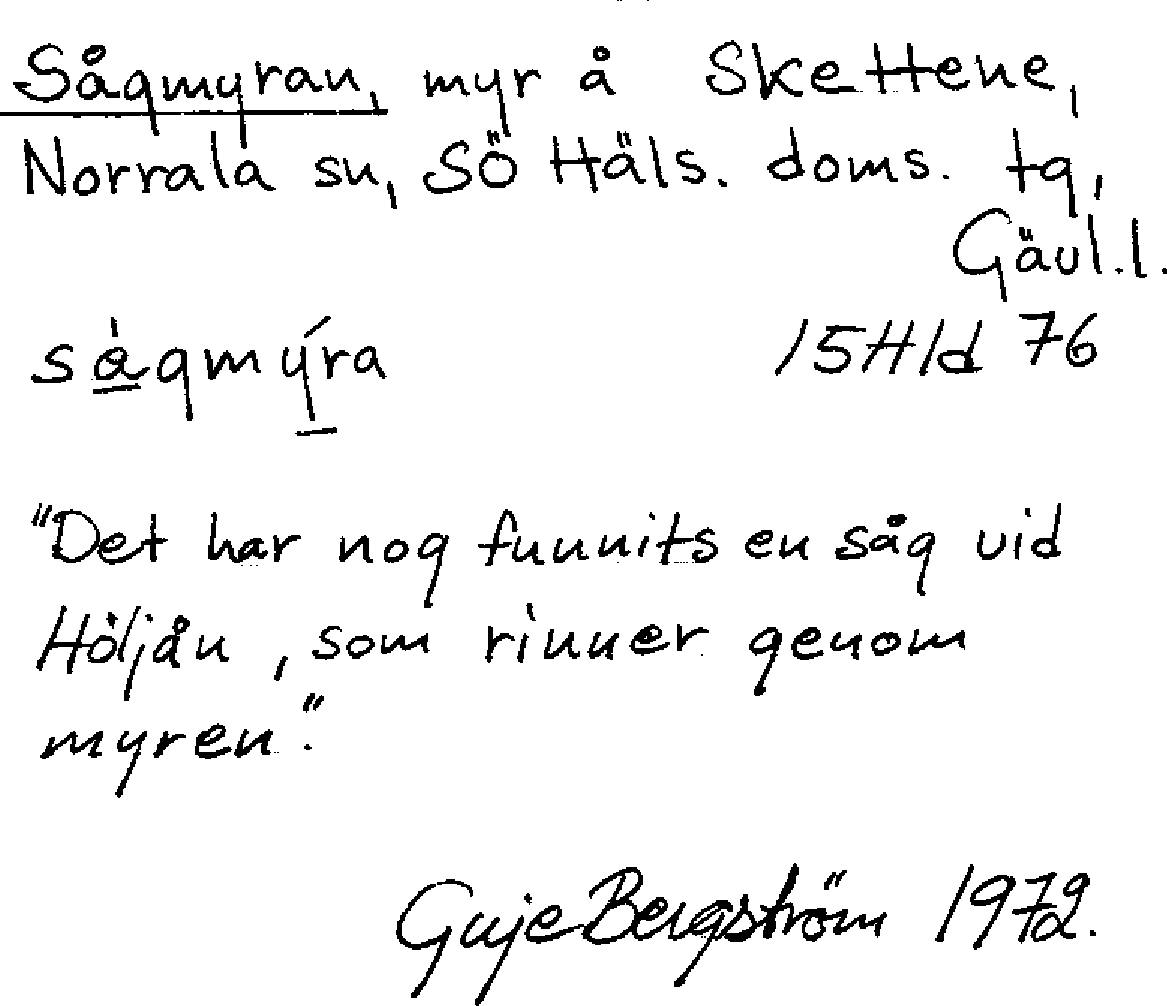 Sågmyran, myr å Skettene,
Norrala sn, Sö Häls. doms. tg,
Gävl.l.
sågmýra 15H1d 76
"Det har nog funnits en såg vid
Höljån, som rinner genom
myren".
Guje Bergström 1972.